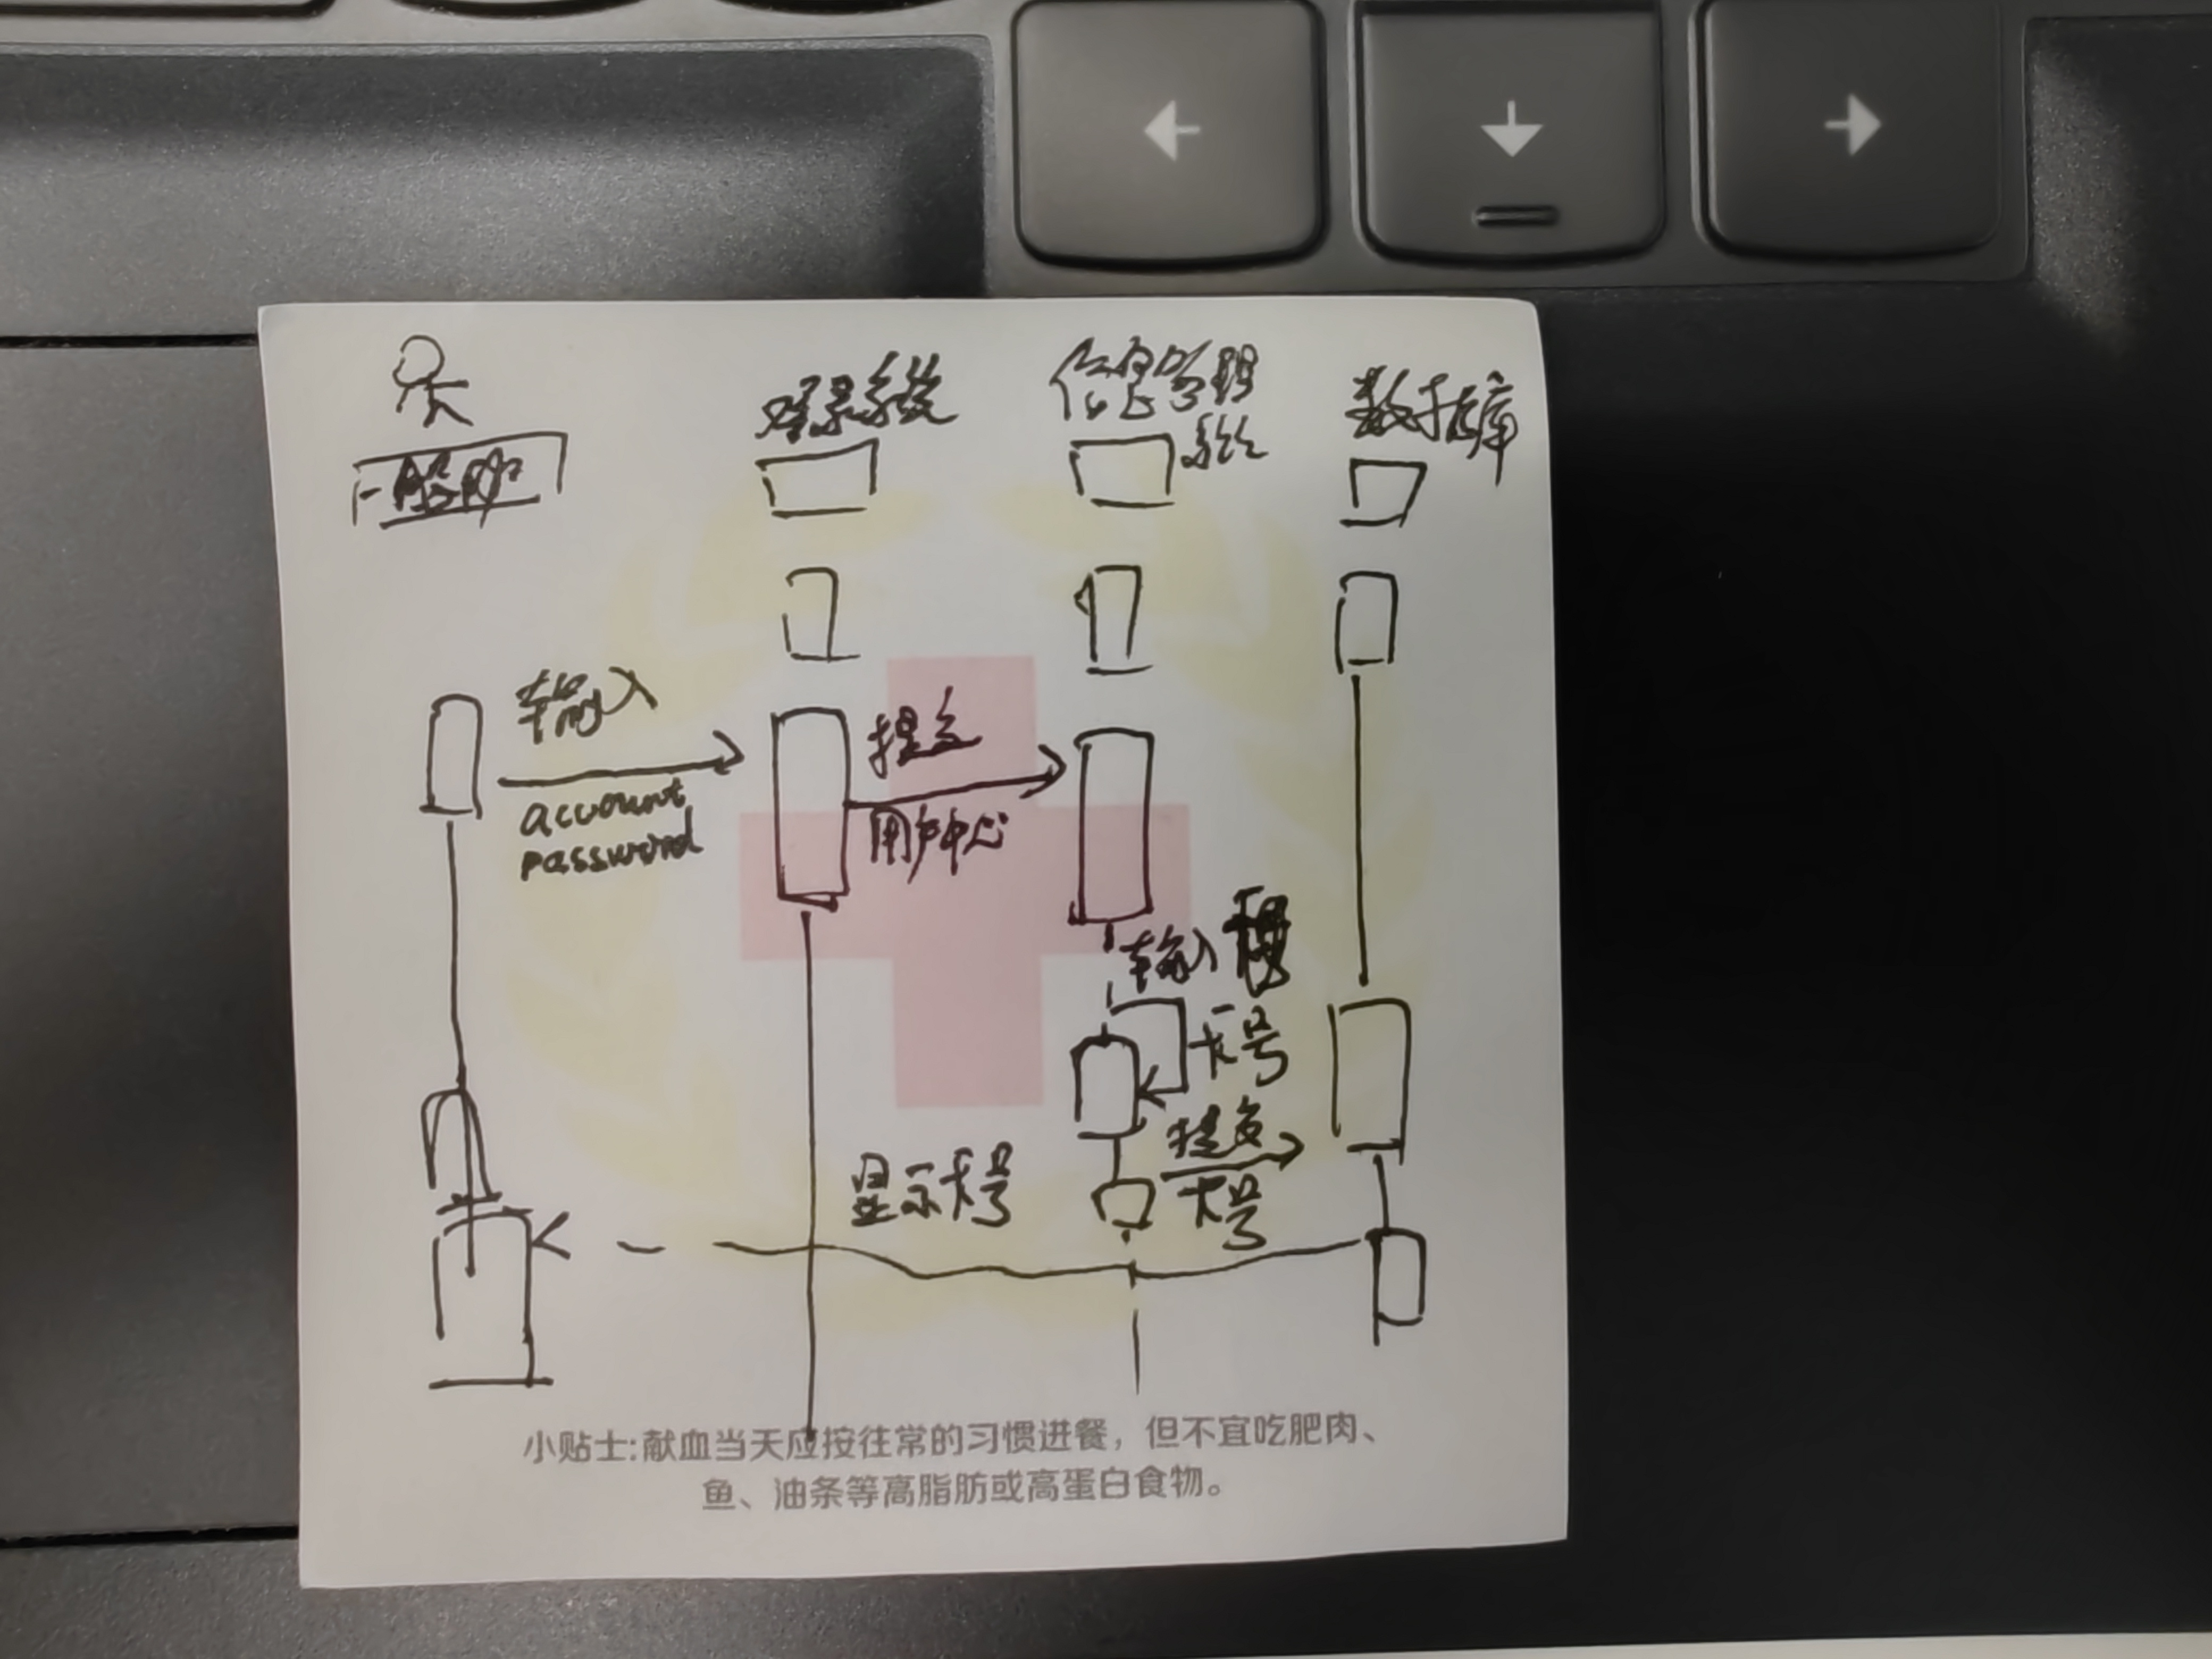 登录系统
信息管理
系统
数据库
一般用户
输入
account
password
提交
用户中心
输入
卡号
提交
卡号
显示卡号
小贴士:献血当天应按往常的习惯进餐，但不宜吃肥肉、
鱼、油条等高脂肪或高蛋白食物。